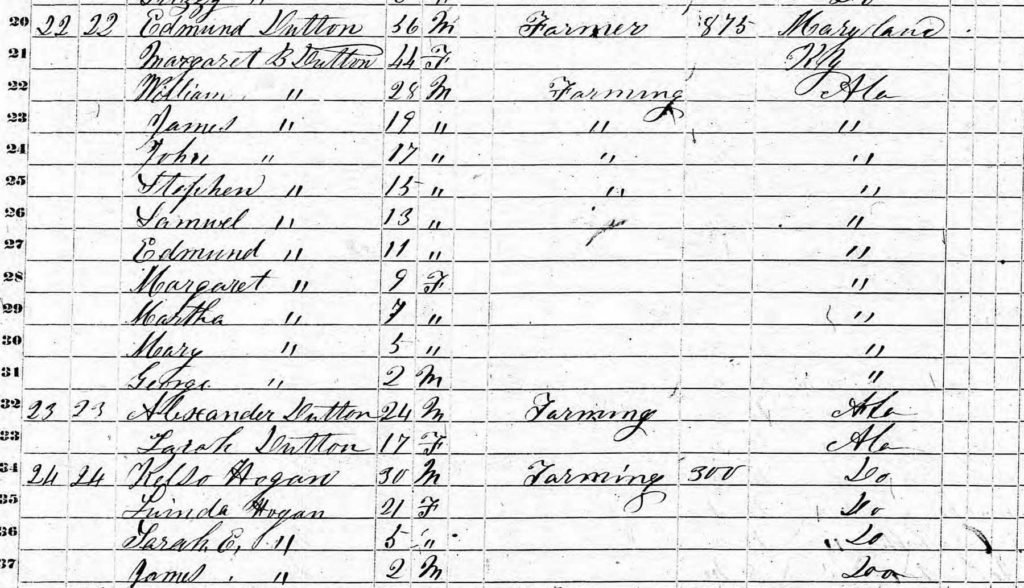 20 22 22 Edmund Dutton 56 M Farmer 875 Maryland
21 Margaret B Dutton 44 F Ky
22 William " 28 M Farming Ala
23 James " 19 " " "
24 John " 17 " " "
25 Stephen " 15 " " "
26 Samuel " 13 " "
27 Edmund " 11 " "
28 Margaret " 9 F "
29 Martha " 7 " "
30 Mary " 5 " "
31 George " 2 M "
32 23 23 Alexander Dutton 24 M Farming Ala
33 Sarah Dutton 17 F Ala
34 24 24 Kelso Hogan 30 M Farming 300 Do
35 Hogan 21 F Do
36 Sarah E, " 5 " Do
37 James " 2 M